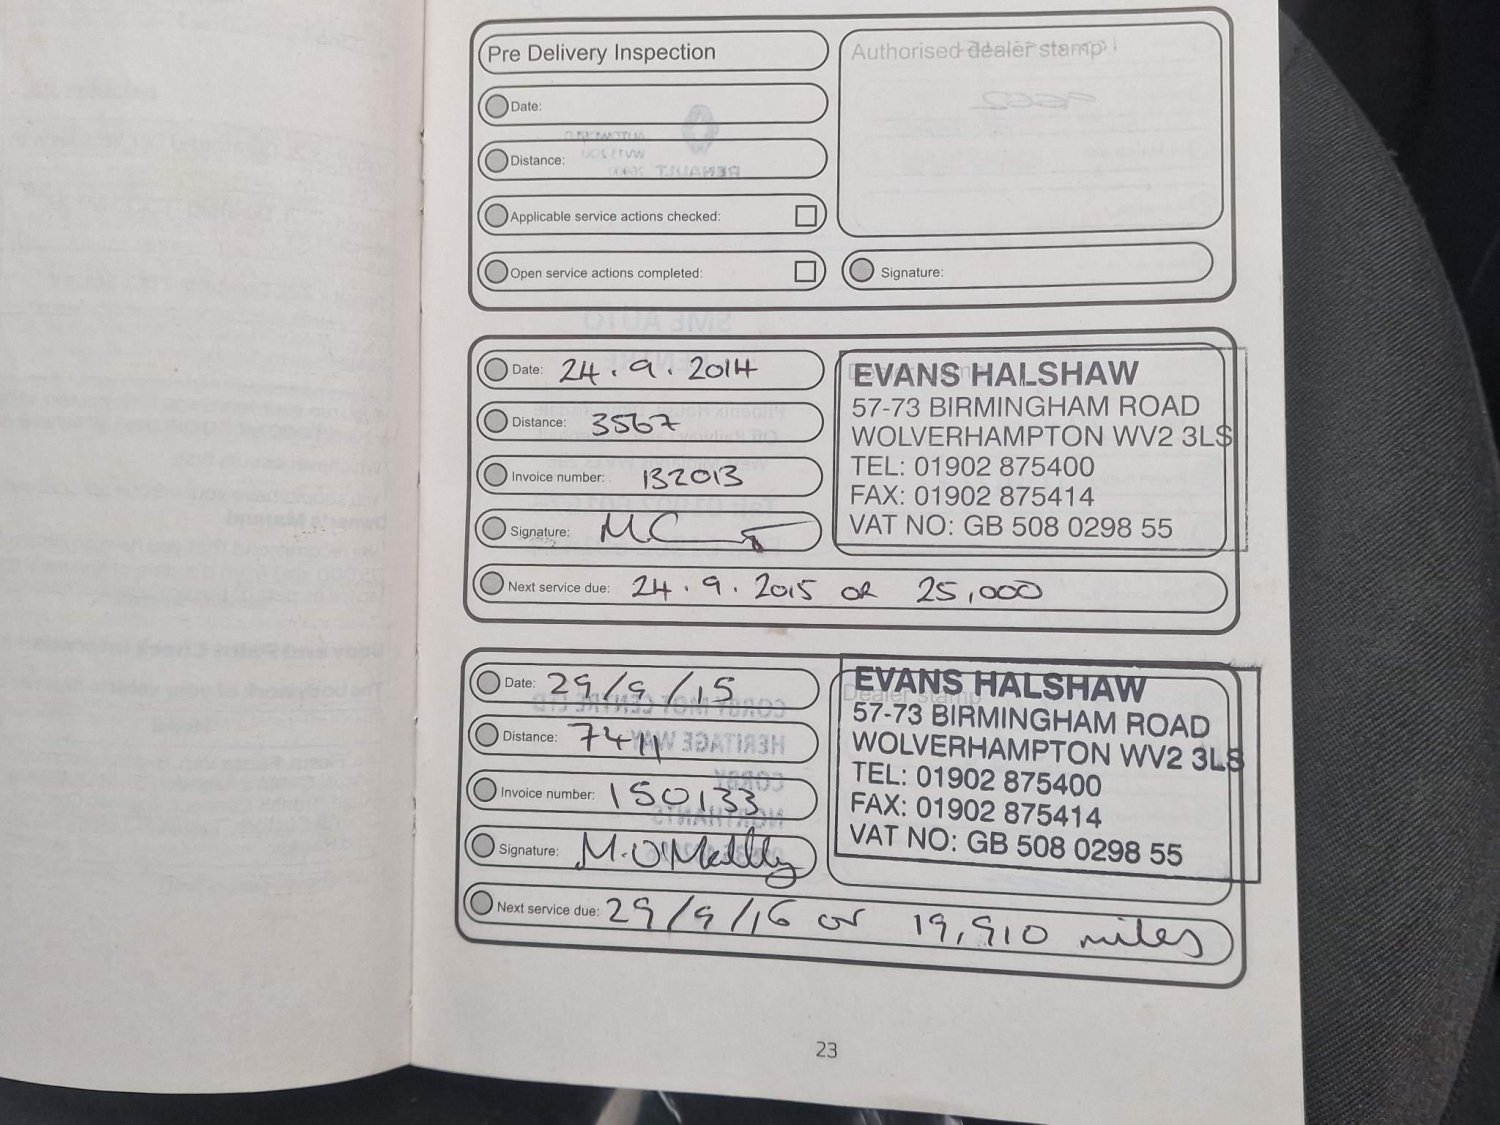 Pre Delivery Inspection
Authorised dealer stamp
Date:
Distance:
Applicable service actions checked:
Open service actions completed:
Signature:
Date: 24.9.2014
Distance: 3567
Invoice number: 132013
Signature: MC
Next service due: 24.9.2015 OR 25,000
EVANS HALSHAW
57-73 BIRMINGHAM ROAD
WOLVERHAMPTON WV2 3LS
TEL: 01902 875400
FAX: 01902 875414
VAT NO: GB 508 0298 55
Date: 29/9/15
Distance: 7411
Invoice number: 150133
Signature:
Next service due: 29/9/16 or 19,910 miles
Dealer stamp
EVANS HALSHAW
57-73 BIRMINGHAM ROAD
WOLVERHAMPTON WV2 3LS
TEL: 01902 875400
FAX: 01902 875414
VAT NO: GB 508 0298 55
23